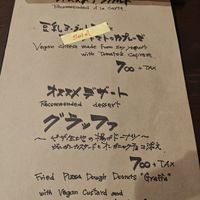 Recommended a la carte
豆乳
Sold
トマトのカプレーゼ
Vegan cheese made from soy yogurt
with Tomato's Caprese
700 + TAX
オススメ デザート
Recommended dessert
グラッファ
～ピザ生地の揚げドーナツ～
添え
700 + TAX
Fried Pizza Dough Donuts "Graffa"
with Vegan Custard and